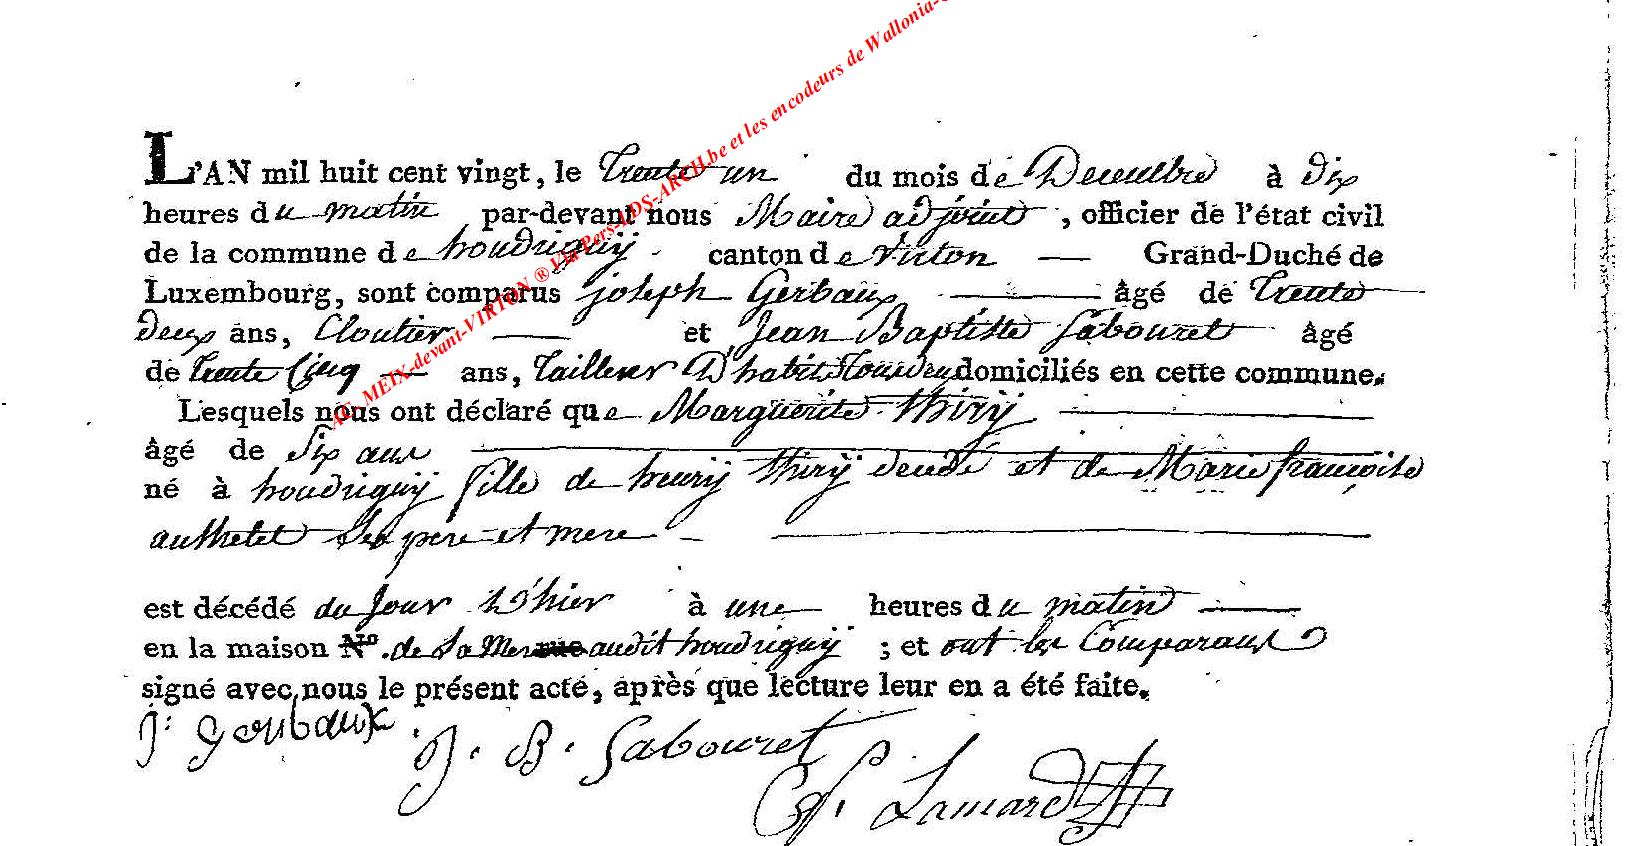 EC MEIX-devant-VIRTON ® Via Pers-LDS-ARCH.be et les encodeurs de Wallonia-
L'AN mil huit cent vingt, le trente un du mois de Decembre à dix
heures du matin par-devant nous Maire adjoint, officier de l'état civil
de la commune de houdriguÿ. canton de virton — Grand-Duché de
Luxembourg, sont comparus joseph Gerbaux — âgé de trente
deux ans, Cloutier — et Jean Baptiste Sabouret âgé
de trente Cinq — ans, tailleur D'habits tous deux domiciliés en cette commune.
Lesquels nous ont déclaré que Marguerite thirÿ —
âgé de Six ans —
né à houdriguÿ fille de henrÿ thirÿ decedé et de Marie françoise
authelet Ses pere et mere —
est décédé du Jour D'hier à une — heures du matin —
en la maison N°. de Sa Mere audit houdriguÿ ; et ont les Comparans
signé avec nous le présent acte, après que lecture leur en a été faite.
J: Gerbaux. J. B. Sabouret
Lamard